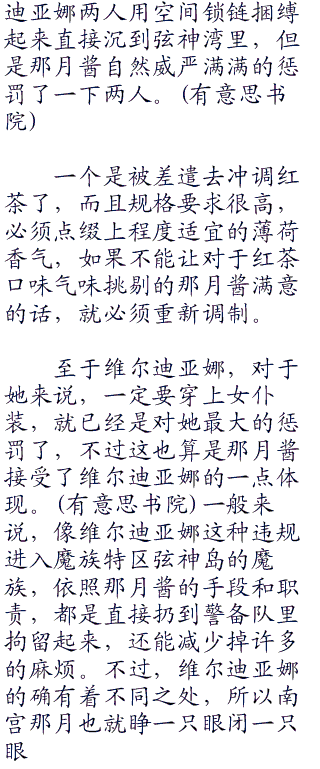 迪亚娜两人用空间锁链捆缚
起来直接沉到弦神湾里，但
是那月酱自然威严满满的惩
罚了一下两人。(有意思书
院)
一个是被差遣去冲调红
茶了，而且规格要求很高，
必须点缀上程度适宜的薄荷
香气，如果不能让对于红茶
口味气味挑剔的那月酱满意
的话，就必须重新调制。
至于维尔迪亚娜，对于
她来说，一定要穿上女仆
装，就已经是对她最大的惩
罚了，不过这也算是那月酱
接受了维尔迪亚娜的一点体
现。(有意思书院)一般来
说，像维尔迪亚娜这种违规
进入魔族特区弦神岛的魔
族，依照那月酱的手段和职
责，都是直接扔到警备队里
拘留起来，还能减少掉许多
的麻烦。不过，维尔迪亚娜
的确有着不同之处，所以南
宫那月也就睁一只眼闭一只
眼